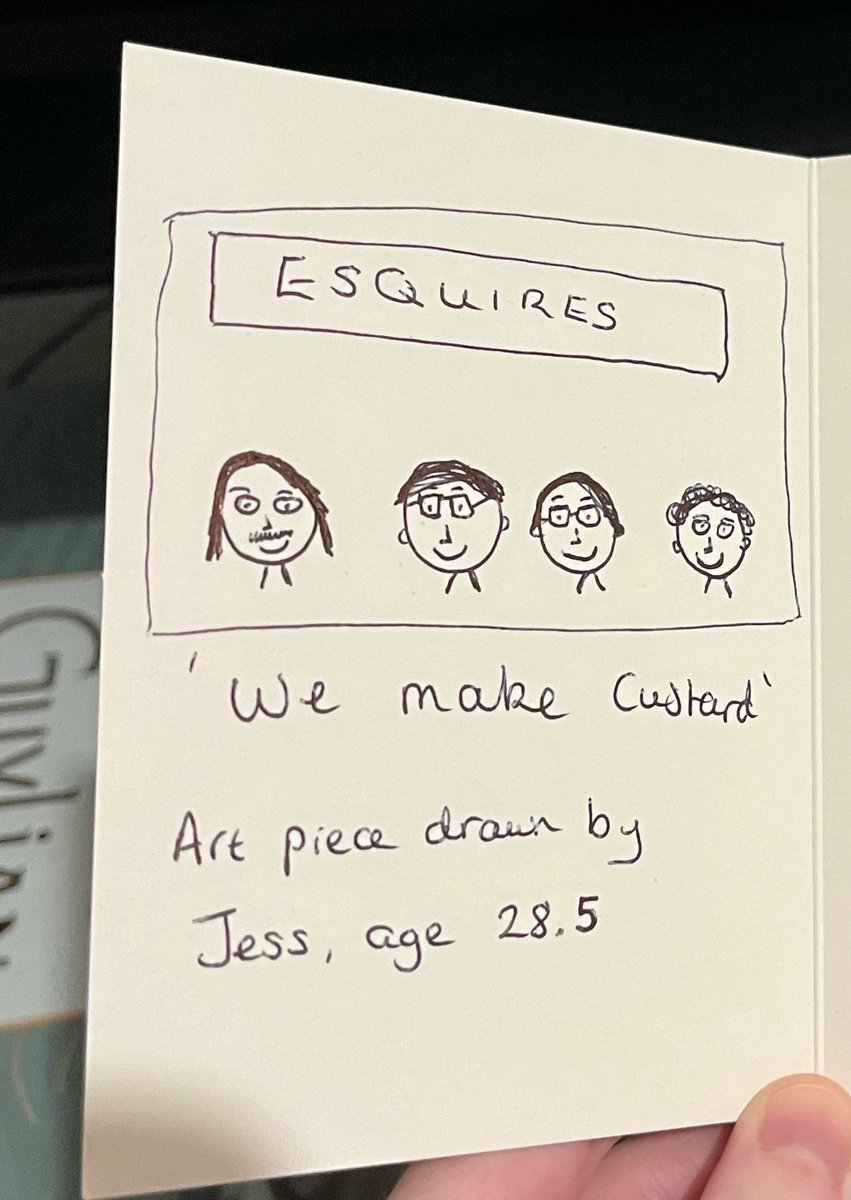 ESQUIRES
'We make Custard'
Art piece drawn by
Jess, age 28.5
GUYLIAN